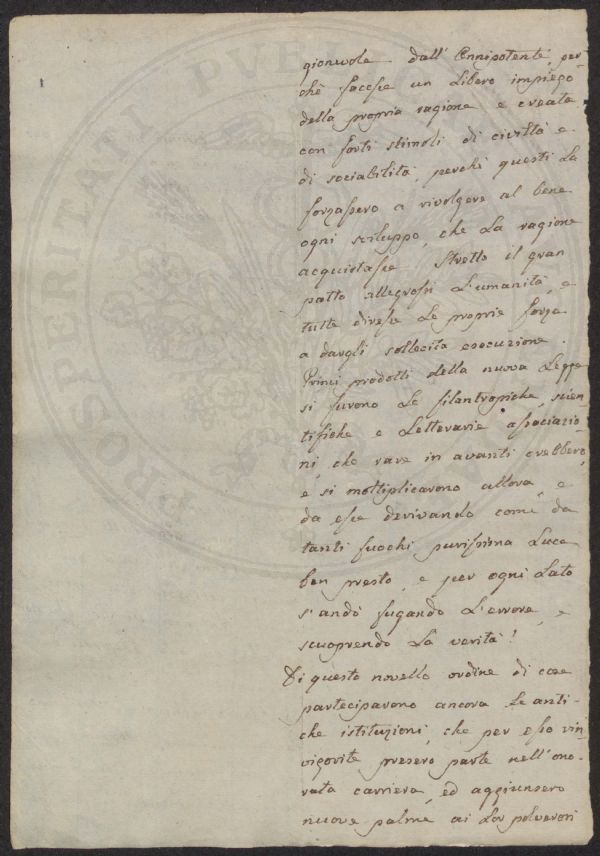 gionevole dall'Onnipotente per-
chè facesse un Libero impiego
della propria ragione e creata
con forti stimoli di civiltà e
di sociabilità, perchè questi La
forzassero a rivolgere al bene
ogni sviluppo, che La ragione
acquistasse. Stretto il gran
patto allegrossi L'umanità, e
tutte diresse Le proprie forze
a dargli sollecita esecuzione.
Primi prodotti della nuova Legge
si furono Le filantropiche, scien-
tifiche e Letterarie associazio-
ni, che rare in avanti crebbero,
e si moltiplicarono allora, e
da esse derivando come da
tanti fuochi purissima Luce
ben presto, e per ogni Lato
s'andò fugando L'errore, e
scuoprendo La verità!
Di questo novello ordine di cose
parteciparono ancora Le anti-
che istituzioni, che per esso rin-
vigorite presero parte nell'ono-
rata carriera, ed aggiunsero
nuove palme ai Lor polverosi
PROSPERITATI PVBLI